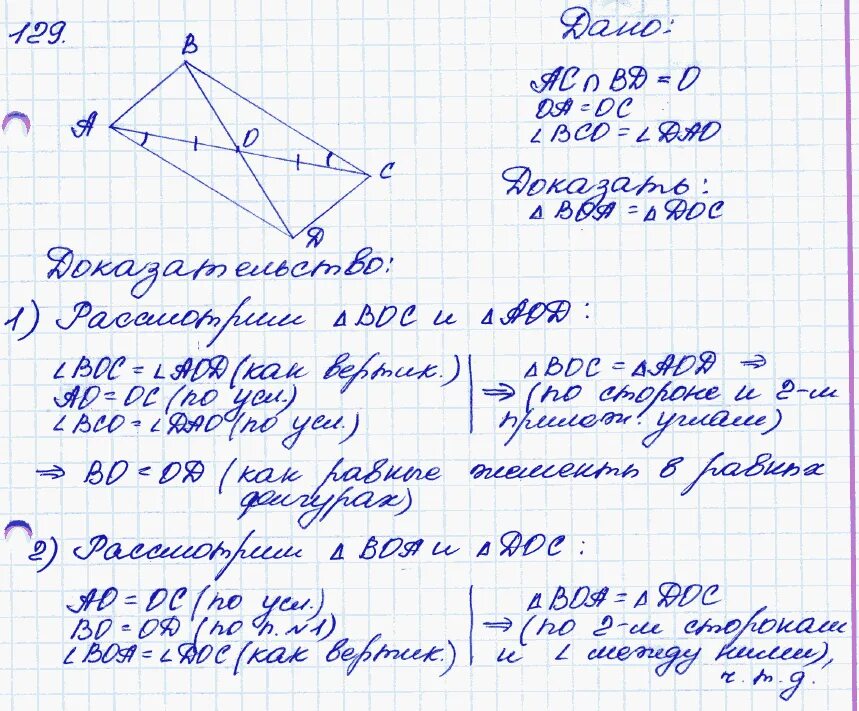 129.
B
A
O
C
D
Дано:
AC ∩ BD = O
OA = OC
∠BCO = ∠DAO
Доказать:
△BOA = △DOC
Доказательство:
1) Рассмотрим △BOC и △AOD:
∠BOC = ∠AOD (как вертик.)
AO = OC (по усл.)
∠BCO = ∠DAO (по усл.)
△BOC = △AOD ⇒
⇒ (по стороне и 2-м
прилеж. углам)
⇒ BO = OD (как равные элементы в равных
фигурах)
2) Рассмотрим △BOA и △DOC:
AO = OC (по усл.)
BO = OD (по п. №1)
∠BOA = ∠DOC (как вертик.)
△BOA = △DOC
⇒ (по 2-м сторонам
и ∠ между ними),
ч.т.д.